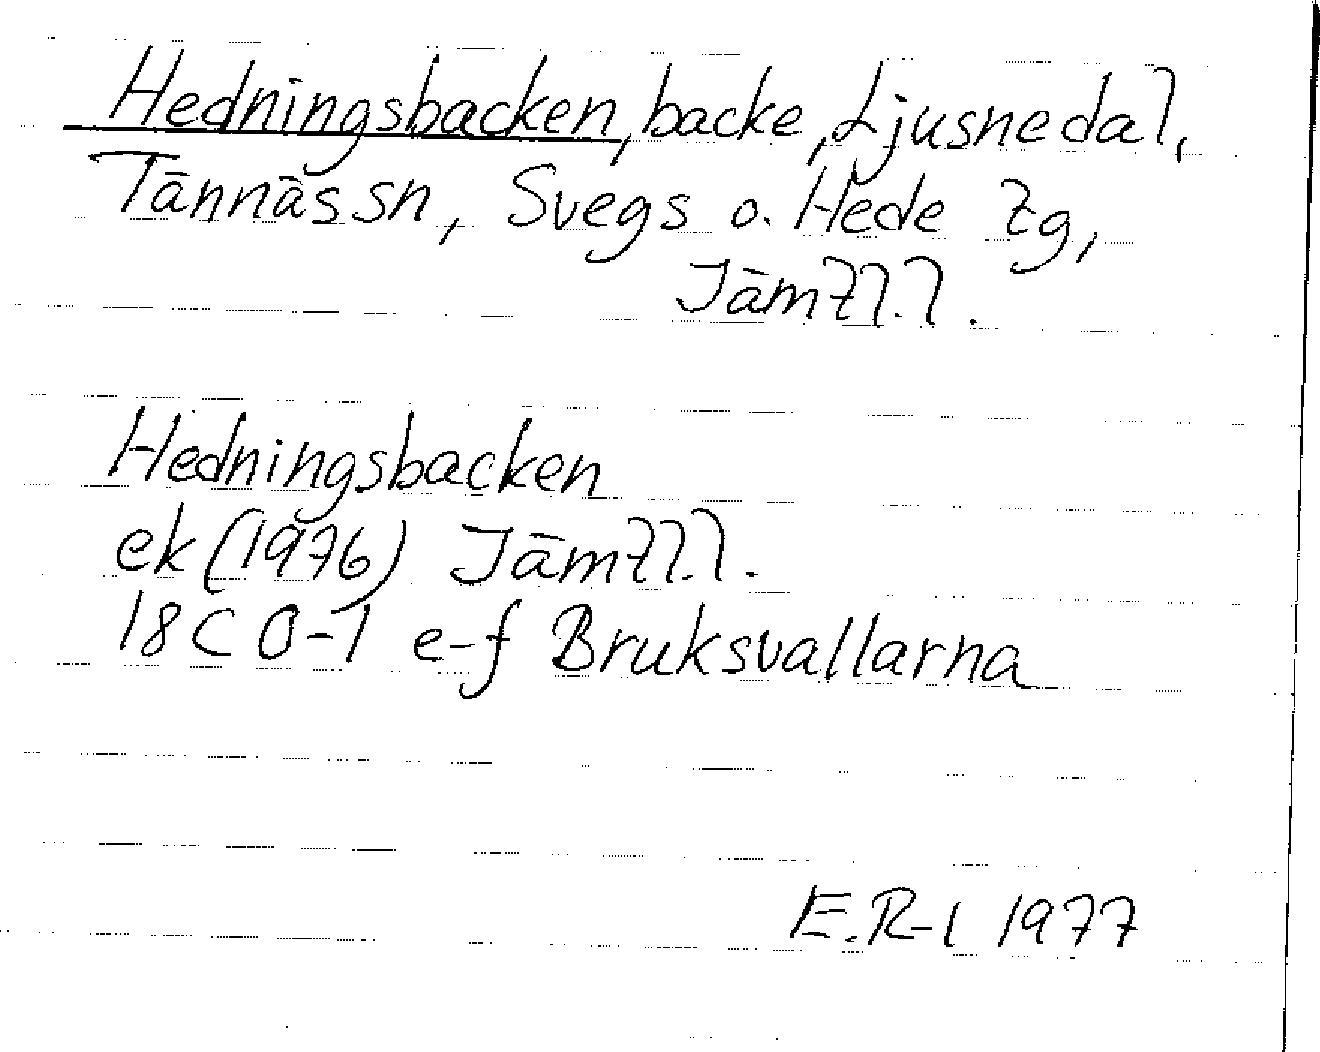 Hedningsbacken, backe, Ljusnedal,
Tännäs sn, Svegs o. Hede tg,
Jämtl.l.
Hedningsbacken
ek (1976) Jämtl.l.
18C 0-1 e-f Bruksvallarna
E.R-l 1977